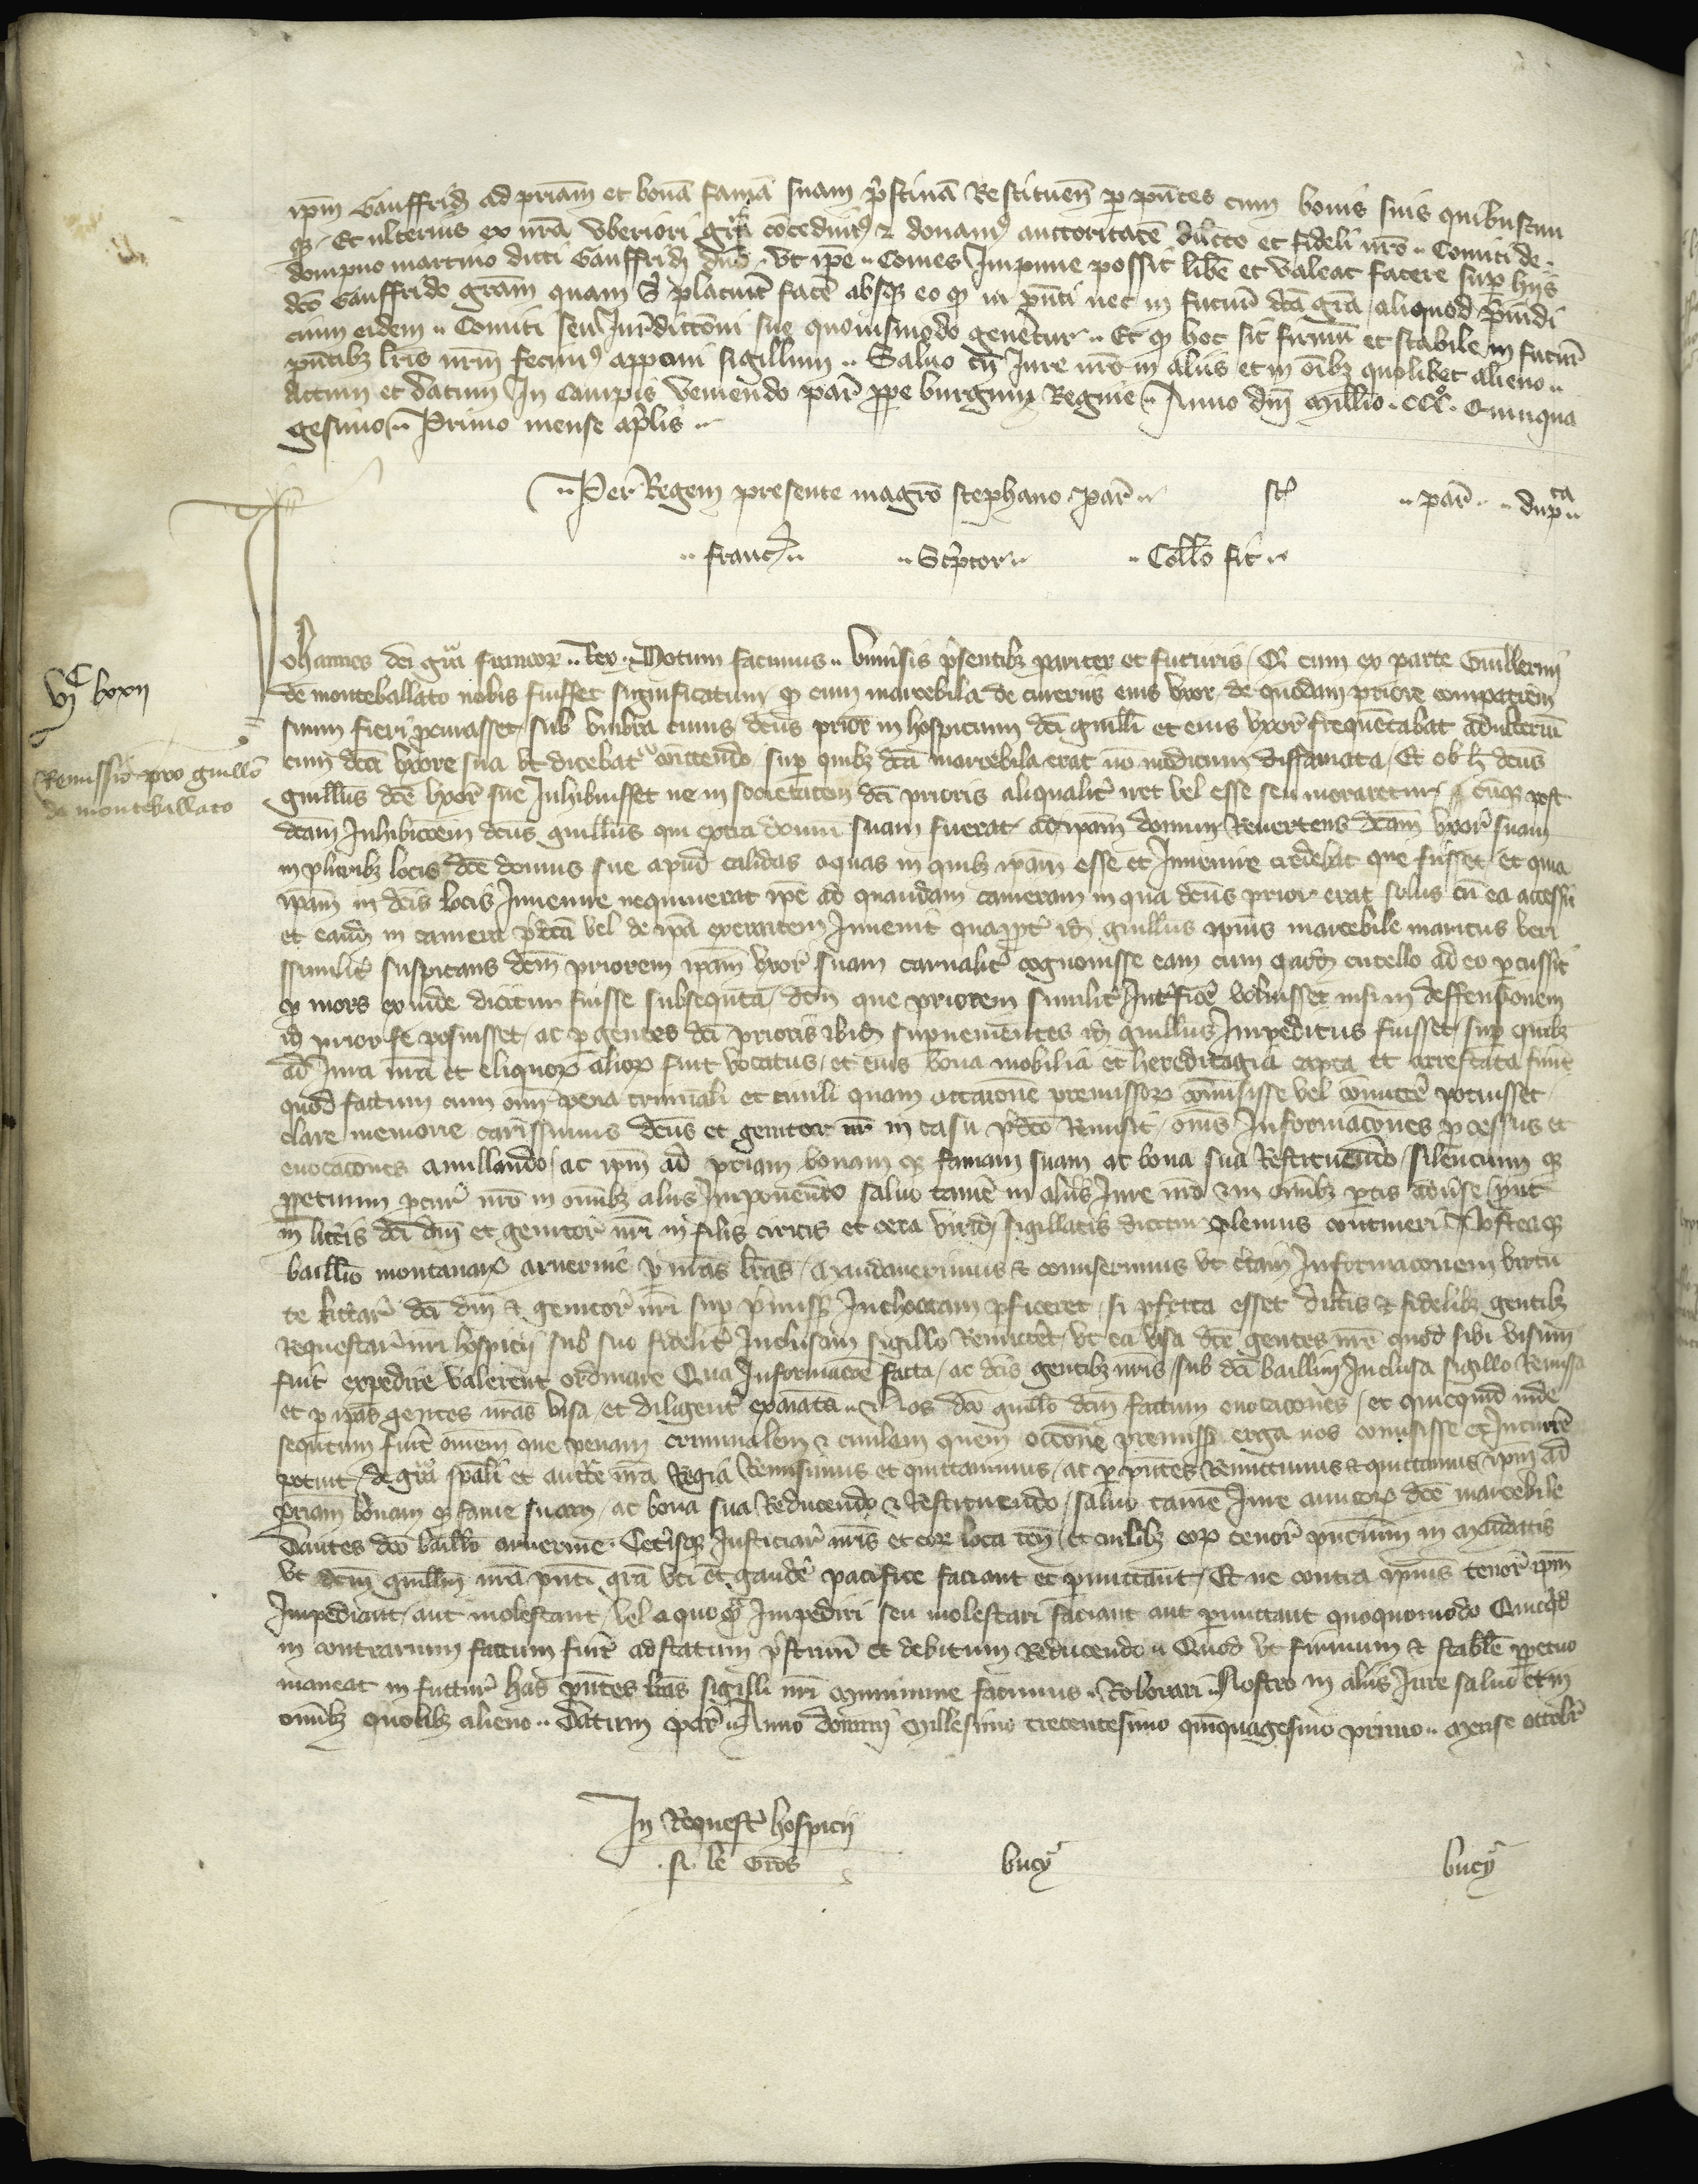 ip̄m Gauffrid ad p̄riam et bonā famā suam p̄stinā Restituen̄ p p̄ntes cum bonis suis quibuscun
qz. Et ulterius ex nr̄a vberiori gr̄a cōcedimꝰ & donamꝰ auctoritatē dilcto et fideli nr̄o .. Comiti de
dompno martino dicti Gauffrid dn̄o .. vt ip̄e .. Comes Impune possit libē et valeat facere sup hijs
dc̄o Gauffrido grām quam s̄ placuit facē absqz eo qꝫ in p̄nti nec in futur̄ dc̄a gr̄a aliquod p̄iudi
cium eidem .. Comiti seu Iur̄dictōni sue quouismodo genētur .. Et qꝫ hoc sit firmū et stabile in futur̄
p̄ntibz lr̄is nr̄m fecimꝰ apponi sigillum .. Saluo tn̄ Iure nr̄o in aliis et in oībz quolibet alieno ..
Actum et datum In Campis veniendo par̄ ppe burgum Regine .. Anno dn̄i Millio . CCCº . Quinqua
gesimo .. Primo mense ap̄lis ..
.. Per Regem presente magrō stephano par̄ .. .. par̄ .. .. dupca ..
.. franc .. .. Sc̄ptor .. .. Coll̄o fit ..
Johannes dei gr̄a francoꝝ .. Rex . Notum facimus .. vniūsis p̄sentibz pariter et futuris / Q̄ cum ex parte Guillermi
de monteballato nobis fuisset significatum qꝫ cum marcebila de cueriis eius vxor de quodam priore compatrem
suum fieri p̄curasset sub vmbra cuius dc̄us prior in hospicium dc̄i guill̄i et eius vxor̄ frequētabat adulteriū
cum dc̄a vxore sua vt dicebat᷑ cōmittendo / sup quibz dc̄a marcebila erat nō modicum diffamata / Et ob h̄ dc̄us
guill̄us dc̄e vxor̄ sue Inhibuisset ne in societatem dc̄i prioris aliqualit̄ iret vel esse seu moraretur / cūqz post
dc̄am Inhibicōem dc̄us guill̄us qui extra domū suam fuerat ad ip̄am domum Reuertens dc̄am vxor̄ suam
in pluribz locis dc̄e domus sue apud calidas aquas in quibz ip̄am esse et Inuenire credebat que fuisset / et quia
ip̄am in dc̄is locis Inuenire nequiuerat ip̄e ad quandam cameram in qua dc̄us prior erat solus cū ea accessit
et eand in camera p̄dc̄a vel de ip̄a exeuntem Inuenit quapp̄t id guill̄us ip̄ius marcebile maritus veri
ssimilit̄ suspicans dc̄m priorem ip̄am vxor̄ suam carnalit̄ cognouisse eam cum quod cutello ad eo p̄cussit
qꝫ mors exinde dicitur fuisse subsequuta / dc̄m que priorem similit̄ Int̄ficē voluisset nisi in deffensionem
id prior se posuisset ac p gentes dc̄i prioris ibid supuenientes id guill̄us Impeditus fuisset / sup quibz
ad Iura nr̄a et eliquoꝝ alioꝝ fuit vocatus / et eius bona mobilia et hereditagia capta et arrestata fuit
quod factum cum omī pena criminali et ciuili quam occasione premissoꝝ cōmisisse vel cōmittē potuisset
clare memorie carissimus dn̄us et genitor nr̄ in casu p̄dc̄o Remisit / om̄s Informacōnes p̄cessus et
euocacōnes anullando / ac ip̄m ad p̄riam bonam qz famam suam ac bona sua Restituendo / silencium qz
ppetuum p̄cur̄ nr̄o in om̄ibz aliis Imponendo saluo tamē in aliis Iure nr̄o & in om̄ibz ptis aduerse / p̄ut
in litt̄is dc̄i dn̄i et genitor̄ nr̄i in filis ciricis et cera virid sigillatis dicitur plenius contineri Posteaqz
baill̄io montanaꝝ aruernie p̄ nr̄as lr̄as / Mandauerimus & comiserimus vt dc̄am Informacōnem virtu
te litt̄ar̄ dc̄i dn̄i & genitor̄ nr̄i sup p̄miss̄ Inchoatam p̄ficeret / si p̄fecta esset dilc̄is & fidelibz gentibz
Requestar̄ nr̄i hospicii sub suo fidelit̄ Inclusam sigillo Remittēt / vt ea visa dc̄e gentes nr̄e quod sibi visum
fuit̄ expedire valerent ordinare Qua Informacōe facta / ac dc̄is gentibz nr̄is / sub dc̄i baill̄iui Inclusa sigillo Remissa
et p ip̄as gentes nr̄as visa / et diligent̄ exaīata .. Nos dc̄o guill̄o dc̄m factum euocacōnes / et quicquid inde
sequtum fuit̄ omēm que penam criminalem & ciuilem quem occōne premiss̄ erga nos comisisse & Incurrē
potuit / de gr̄a sp̄ali et auct̄e nr̄a Regia Remisimus et quittauimus / ac p p̄ntes Remittimus & quittamus ip̄m ad
p̄riam bonam qꝫ fame suam / ac bona sua Reducendo & Restituendo / saluo tamē Iure amicoꝝ dc̄e marcebile
Dantes dc̄o baill̄o aruernie . Cet̄isqz Iusticiar̄ nr̄is et eoꝝ loca ten̄ / et cuilibz eoꝝ tenor̄ p̄ncium in Mandatis
vt dc̄m guill̄m nr̄a p̄nti gr̄a vti et gaudē pacifice faciant et p̄mittant / Et ne contra ip̄ius tenor̄ ip̄m
Impediant / aut molestant / vel a quoqꝫ Impediri seu molestari faciant aut permittant quoquomodo Quicqd
in contrarium factum fuit̄ ad statum p̄stinū et debitum Reducendo .. Quod vt firmum & stabile ppetuo
maneat in futtur̄ has p̄ntes lr̄as sigilli nr̄i Munimine facimus .. Roborari .. Nostro in aliis Iure saluo et in
om̄ibz quolibz alieno .. Datum par̄ .. Anno domini Millesimo trecentesimo quinquagesimo primo .. Mense octobr̄
VIC LXXII
Remissio pro guill̄o
de monteballato
In Request̄ hospicii
. le Gros bucy bucy